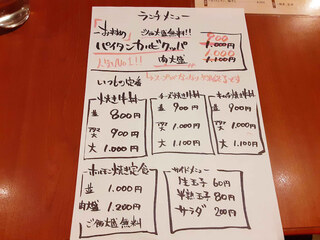 ランチメニュー
おすすめ ごはん大盛無料!!
パイタンカルビクッパ 900
1.000円
人気No.1!! 肉大盛 1.000
1.100円
いつもの定番
焼き牛丼
並 800円
アタマ大 900円
大 1.000円
チーズ焼き牛丼
並 900円
アタマ大 1.000円
大 1.100円
キムチ焼き牛丼
並 900円
アタマ大 1.000円
大 1.100円
ホルモン焼き定食
並 1.000円
肉大盛 1.200円
ごはん大盛無料
サイドメニュー
生玉子 60円
半熟玉子 80円
サラダ 200円